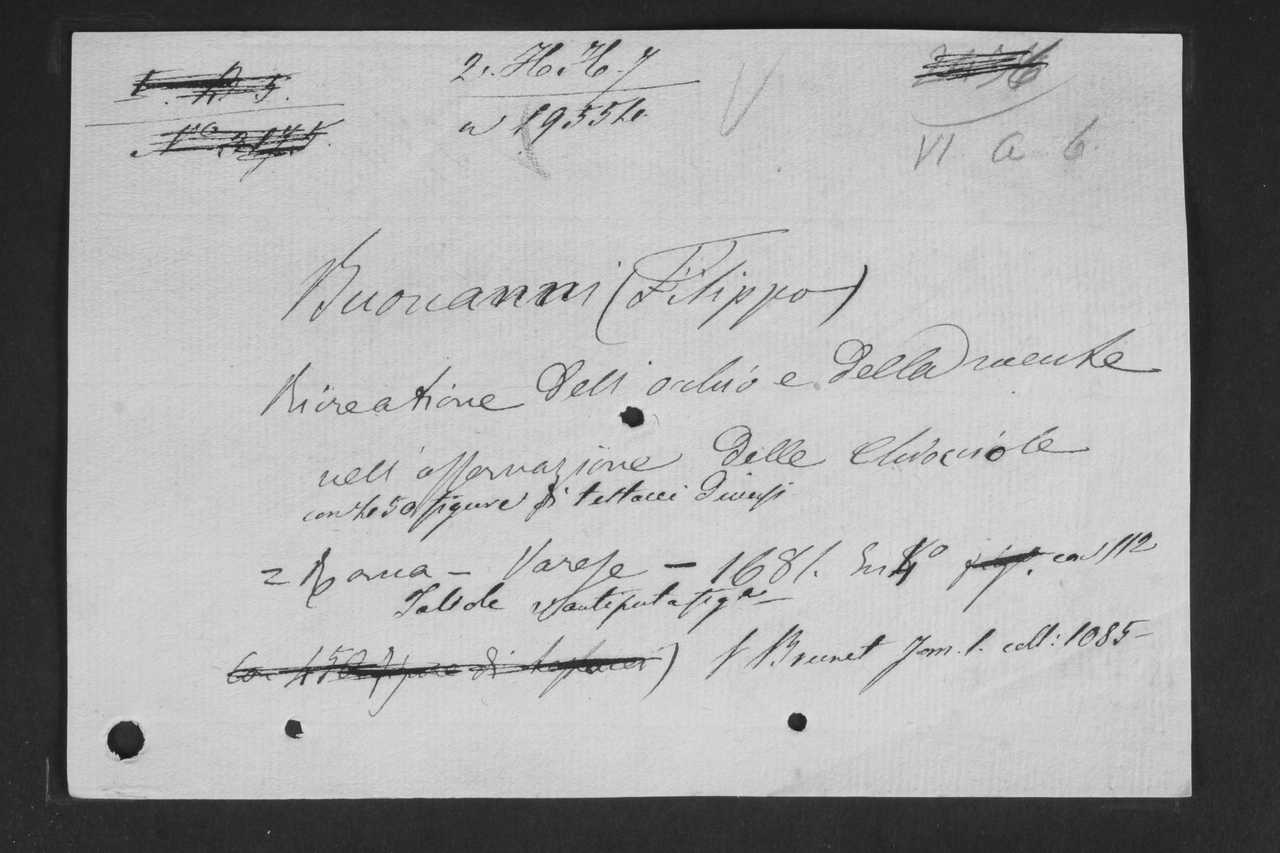 2. H. H. 7
VI a 6.
Buonanni (Filippo)
Ricreatione dell'occhio e della mente
nell'osservazione delle Chiocciole
con 450 figure di testacei diversi
= Roma - Varese - 1681. In 4° con 112
Tavole e antiporta fig.a
(Brunet Tom. 1. coll: 1085-